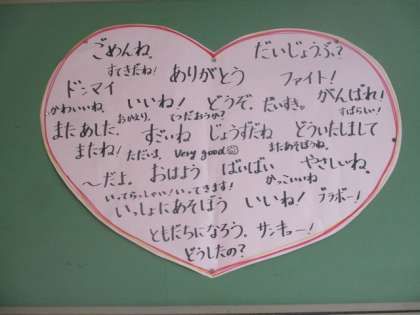 ごめんね。 だいじょうぶ?
すてきだね! ありがとう ファイト!
ドンマイ
かわいいね いいね! どうぞ。 だいすき。 がんばれ!
おかえり。 てつだおうか? すばらしい!
またあした。 すごいね じょうずだね どういたしまして
またね! ただいま Very good またあそぼうね。
〜だよ。 おはよう ばいばい やさしいね。
いってらっしゃい! いってきます! かっこいいね
いっしょにあそぼう いいね! ブラボー!
ともだちになろう。 サンキュー!
どうしたの?